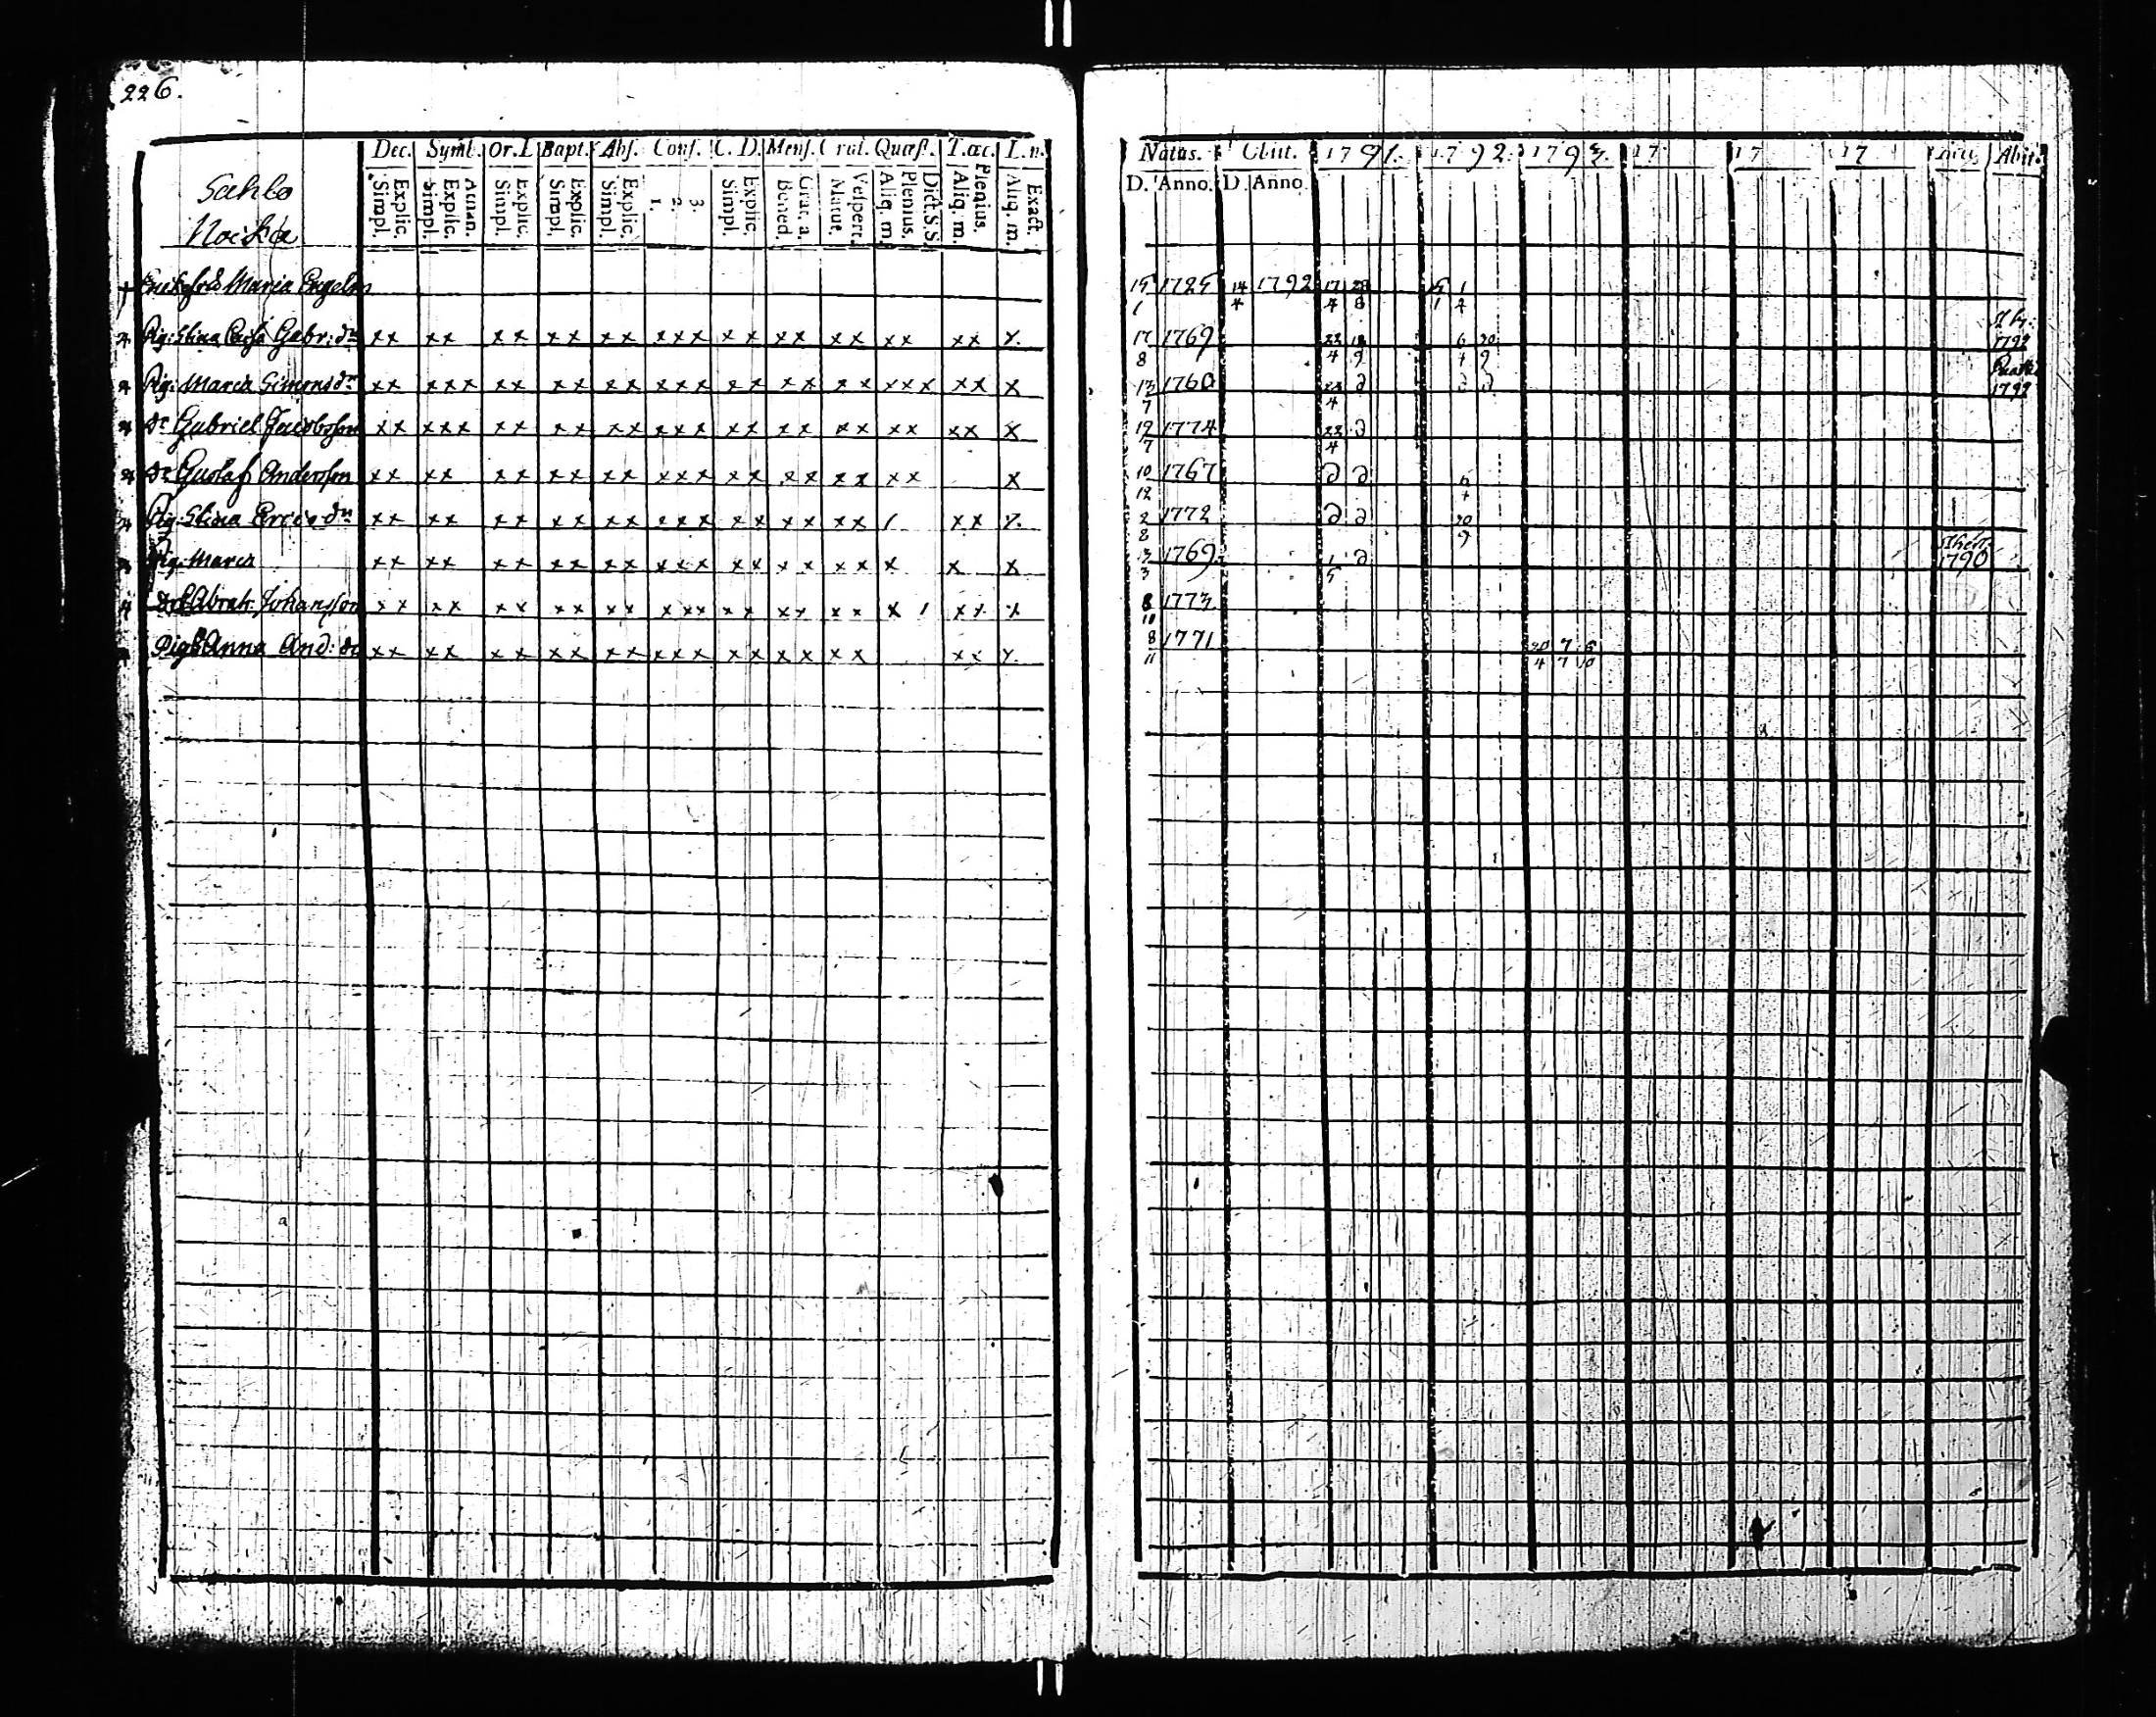 226.
Dec. Symb. Or. D Bapt. Abs. Conf. C. D. Mens. Orat. Quæst. T. œc. L. n.
Simpl. Explic. Simpl. Explic. Athan. Simpl. Explic. Simpl. Explic. Simpl. Explic. 1. 2. 3. Simpl. Explic. Bened. Grat. a. Matut. Vespert. Aliq. m. Plenius. Dict. S. S. Aliq. m. Plenius. Aliq. m. Exact.
Sahlo
Maria
Pig: Stina Caisa Gabr: dr xx xx xx xx xx xxx xx xx xx xx xx x
Pig: Maria Simons dr xx xxx xx xx xx xxx xx xx xx xxx xx x
Dr Gabriel Jacobsson xx xxx xx xx xx xxx xx xx xx xx xx x
Dr Gustaf Andersson xx xx xx xx xx xxx xx xx xx xx x
Pig: Stina Erics dr xx xx xx xx xx xxx xx xx xx / xx x
Pig: Maria xx xx xx xx xx xxx xx xx xx x x x
Abrah. Johansson xx xx xx xx xx xxx xx xx xx x / xx x
Pig Anna And: dr xx xx xx xx xx xxx xx xx xx xx x
Natus. Obiit. 1791. 1792. 1793. 17 17 17 Abit.
D. Anno. D Anno
15 1725 14 1792 17 28 15 1
1 4 4 8 1 4
17 1769 6 20 1792
8 4 9 4 9
13 1760 1792
7 4
12 1774 22
7 4
10 1767 6
12 4
2 1772 20
8 9
3 1769. 1 1790
3 5
8 1773
10
8 1771 20 7 6
11 4 7 10